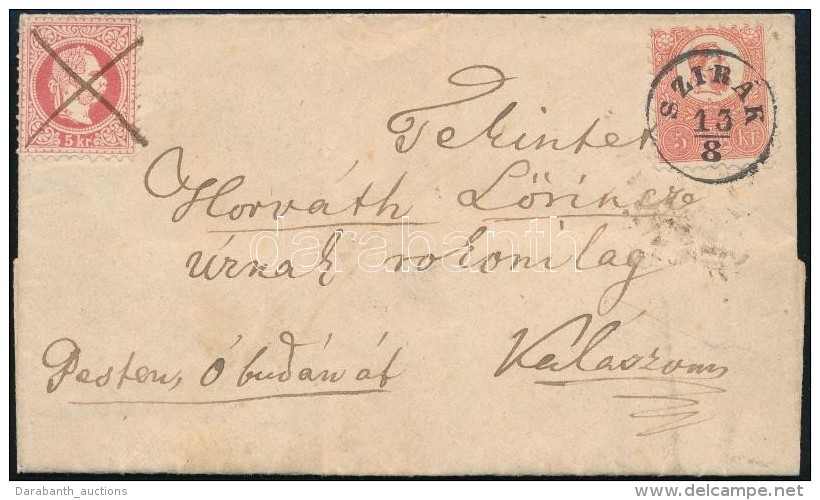 5 kr.
SZIRÁK
13
8
5 KR
Tekintetes
Horváth Lőrincz
Úrnak rokonilag
Pesten, Ó budán át
Kalászon
darabanth
Darabanth_auctions
delcampe.net